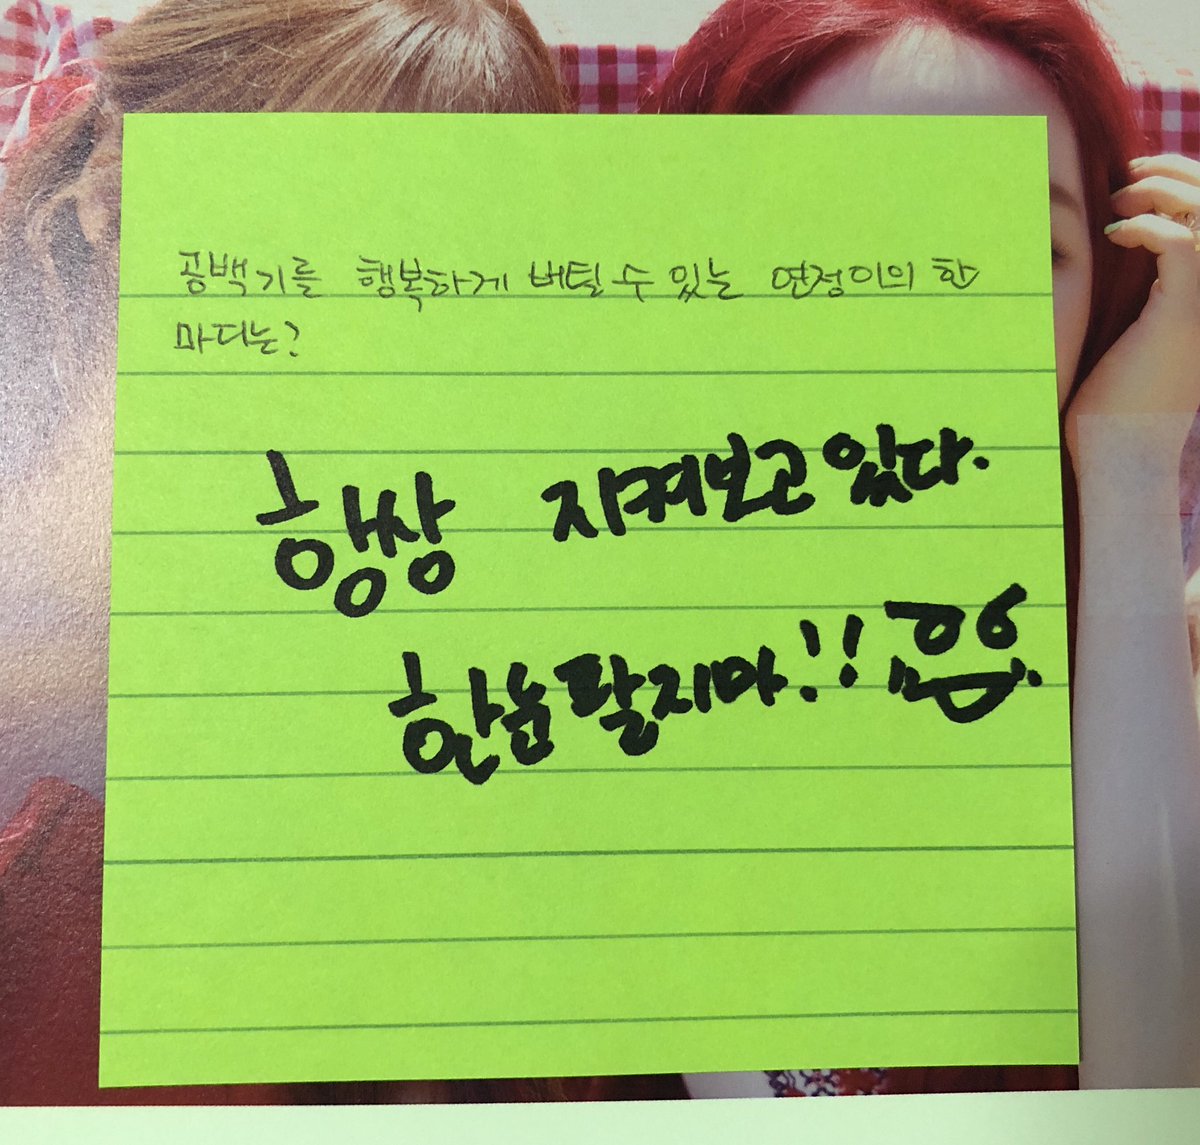 공백기를 행복하게 버틸 수 있는 연정이의 한
마디는?
항상 지켜보고 있다.
한눈 팔지마!!